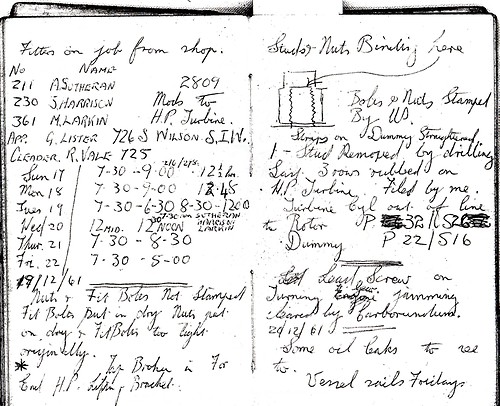 Fitters on job from shop.
No NAME
211 A. SOTHERAN 2809
230 S. HARRISON Mods to
361 M. LARKIN H.P. Turbine.
APP. G. LISTER 726 S WILSON S.I.W.
CLEADER R. VALE 725
Sun 17 7-30-9-00 12½ hrs.
Mon 18 7-30-9-00
Tues 19 7-30-6-30 8-30-1200
Wed 20 12 MID. 12 NOON SOTHERAN HARRISON LARKIN
Thur. 21 7-30-8-30
Fri. 22 7-30-5-00
19/12/61
Nuts & Fit Bolts Not Stamped
Fit Bolts Put in dry Nuts put
on dry & Fit Bolts too tight
originally.
* Tap Broken in For
End H.P. Lifting Bracket.
Studs & Nuts Binding here
Bolts & Nuts Stamped
By US.
Strips on Dummy Straightened
1 - Stud Removed by drilling
Last 3 rows rubbed on
H.P. Turbine. Filed by me.
Turbine Cyl out of line
to Rotor P 32/S26
Dummy P 22/S16
Least Screw on
Turning gear jamming
cleared by Carborundum.
20/12/61
Some oil leaks to see
to.
Vessel sails Fridays